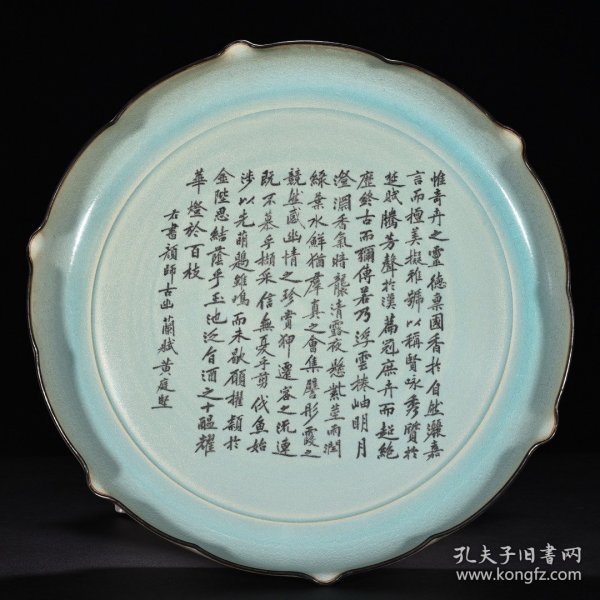 惟奇卉之靈德稟國香於自然灑嘉
言而擅美擬雅號以稱賢詠秀賢於
楚賦騰芳聲於漢篇冠庶卉而超絕
歷終古而彌傳若乃浮雲捲岫明月
澄澗香氣時襲清露夜懸紫莖雨潤
綠葉水鮮猶群真之會集譬彤霞之
競然感幽情之珍賞抑遷客之流連
既不慕乎擷采信無憂乎剪伐魚始
涉以先萌鶗雖鳴而未歇願擢穎於
金陛思結蔭乎玉池泛旨酒之十醞耀
華燈於百枝
右書顏師古幽蘭賦黃庭堅
孔夫子旧書网
www.kongfz.com